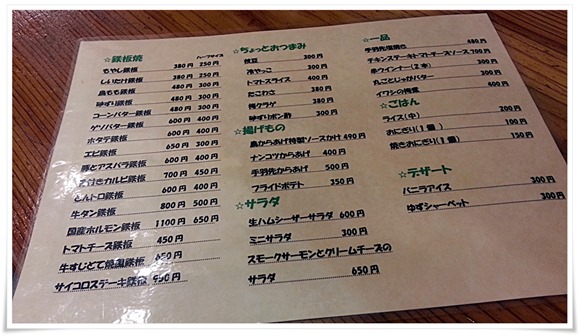 ☆鉄板焼 ハーフサイズ
もやし鉄板 380円 250円
しいたけ鉄板 380円 250円
鳥もも鉄板 480円 300円
砂ずり鉄板 480円 300円
コーンバター鉄板 480円 300円
ゲソバター鉄板 600円 400円
ホタテ鉄板 600円 400円
エビ鉄板 650円 300円
豚とアスパラ鉄板 600円 400円
骨付きカルビ鉄板 700円 450円
とんトロ鉄板 600円 400円
牛タン鉄板 800円 500円
国産ホルモン鉄板 1100円 650円
トマトチーズ鉄板 450円
牛すじとて焼風鉄板 650円
サイコロステーキ鉄板 950円
☆ちょっとおつまみ
枝豆 300円
冷やっこ 300円
トマトスライス 400円
たこわさ 380円
梅クラゲ 380円
砂ずりポン酢 300円
☆揚げもの
鳥からあげ特製ソースかけ 490円
ナンコツからあげ 400円
手羽先からあげ 500円
フライドポテト 350円
☆サラダ
生ハムシーザーサラダ 600円
ミニサラダ 300円
スモークサーモンとクリームチーズの
サラダ 650円
☆一品
手羽先塩焼き 480円
チキンステーキトマトチーズソース 700円
串ウインナー(2本) 300円
丸ごとじゃがバター 300円
イワシの梅煮 400円
☆ごはん
ライス(中) 200円
おにぎり(1個) 100円
焼きおにぎり(1個) 150円
☆デザート
バニラアイス 300円
ゆずシャーベット 300円